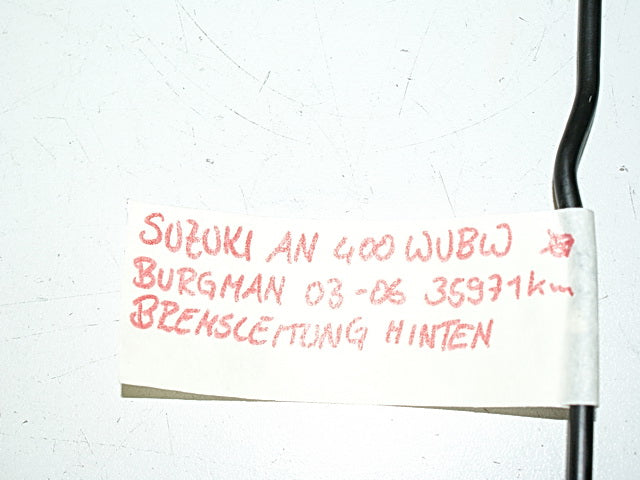 SUZUKI AN 400 WUBW
BURGMAN 03-06 35971km
BREMSLEITUNG HINTEN